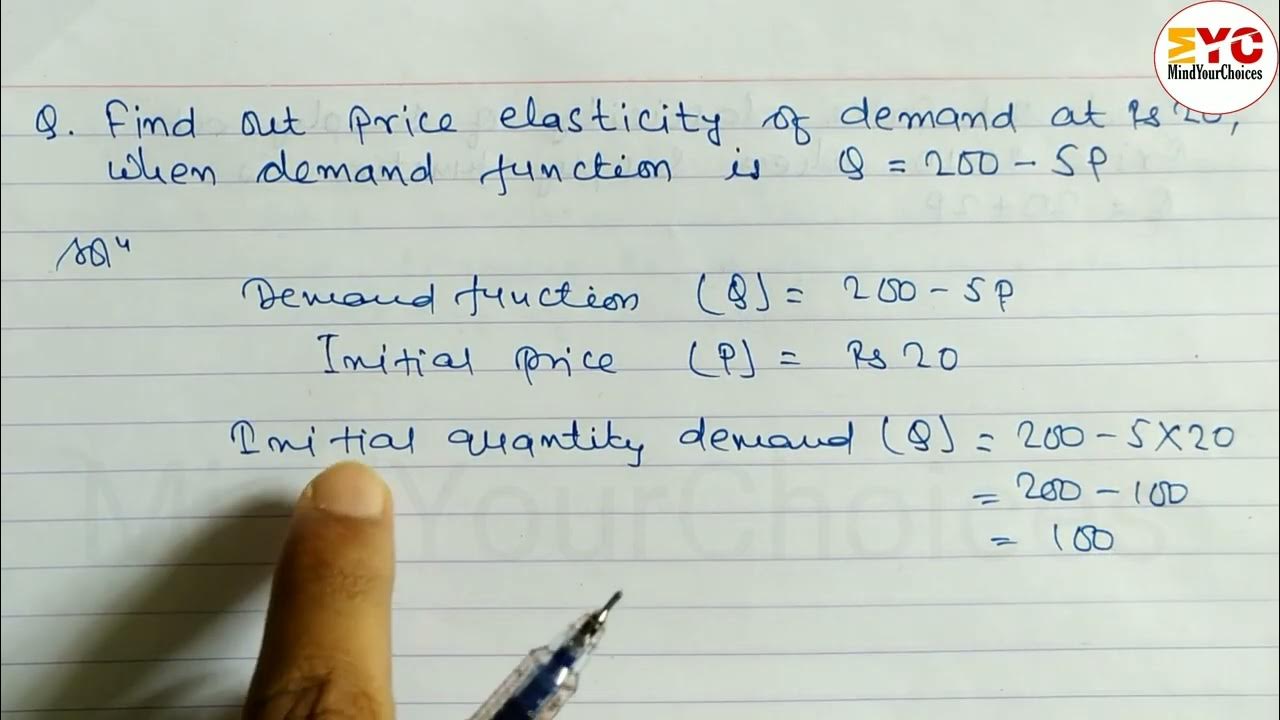 MYC
MindYourChoices
Q. Find out price elasticity of demand at Rs 20,
when demand function is Q = 200 - 5P
Soln
Demand function (Q) = 200 - 5P
Initial price (P) = Rs 20
Initial quantity demand (Q) = 200 - 5X20
= 200 - 100
= 100
MindYourChoices